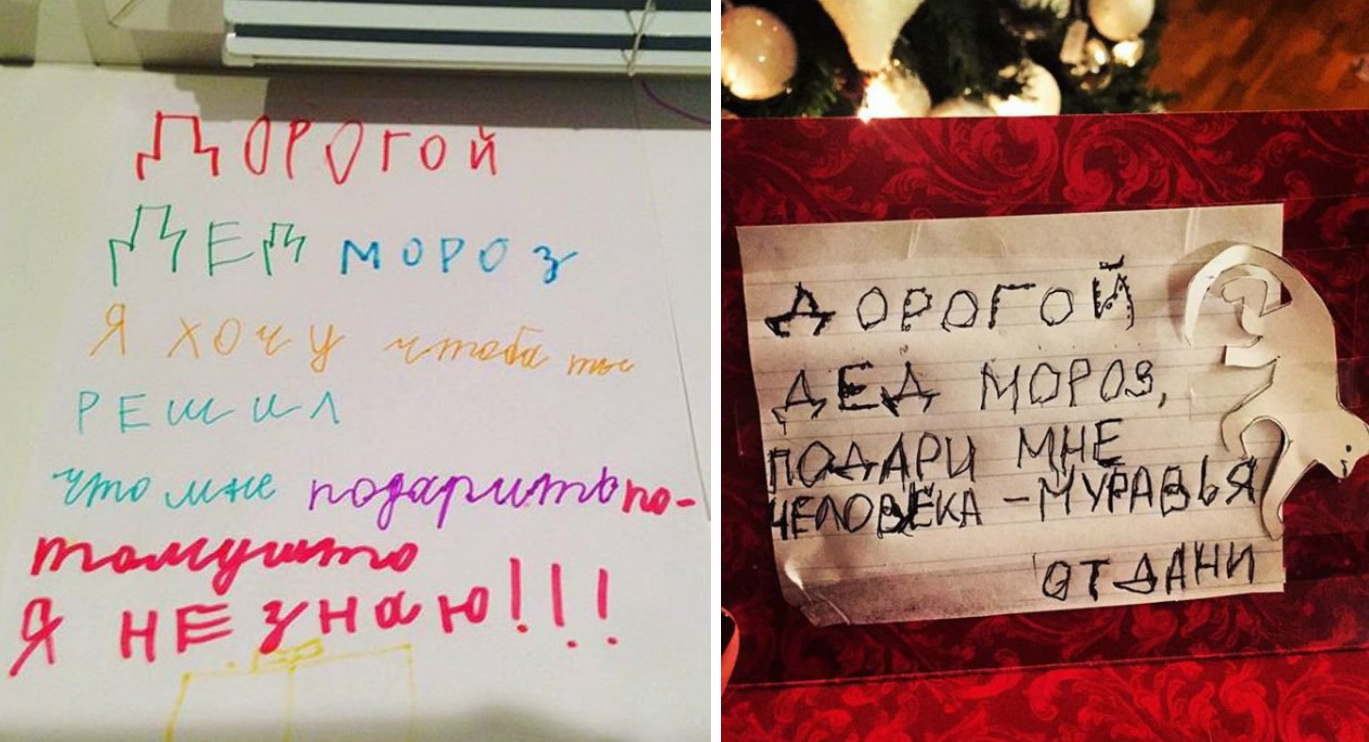 ДОРОГОЙ
ДЕД МОРОЗ
Я ХОЧУ чтоба ты
РЕШИЛ
что мне подарить по-
тамушто
Я НЕ ЗНАЮ!!!
ДОРОГОЙ
ДЕД МОРОЗ,
ПОДАРИ МНЕ
ЧЕЛОВЕКА - МУРАВЬЯ
ОТ ДАНИ